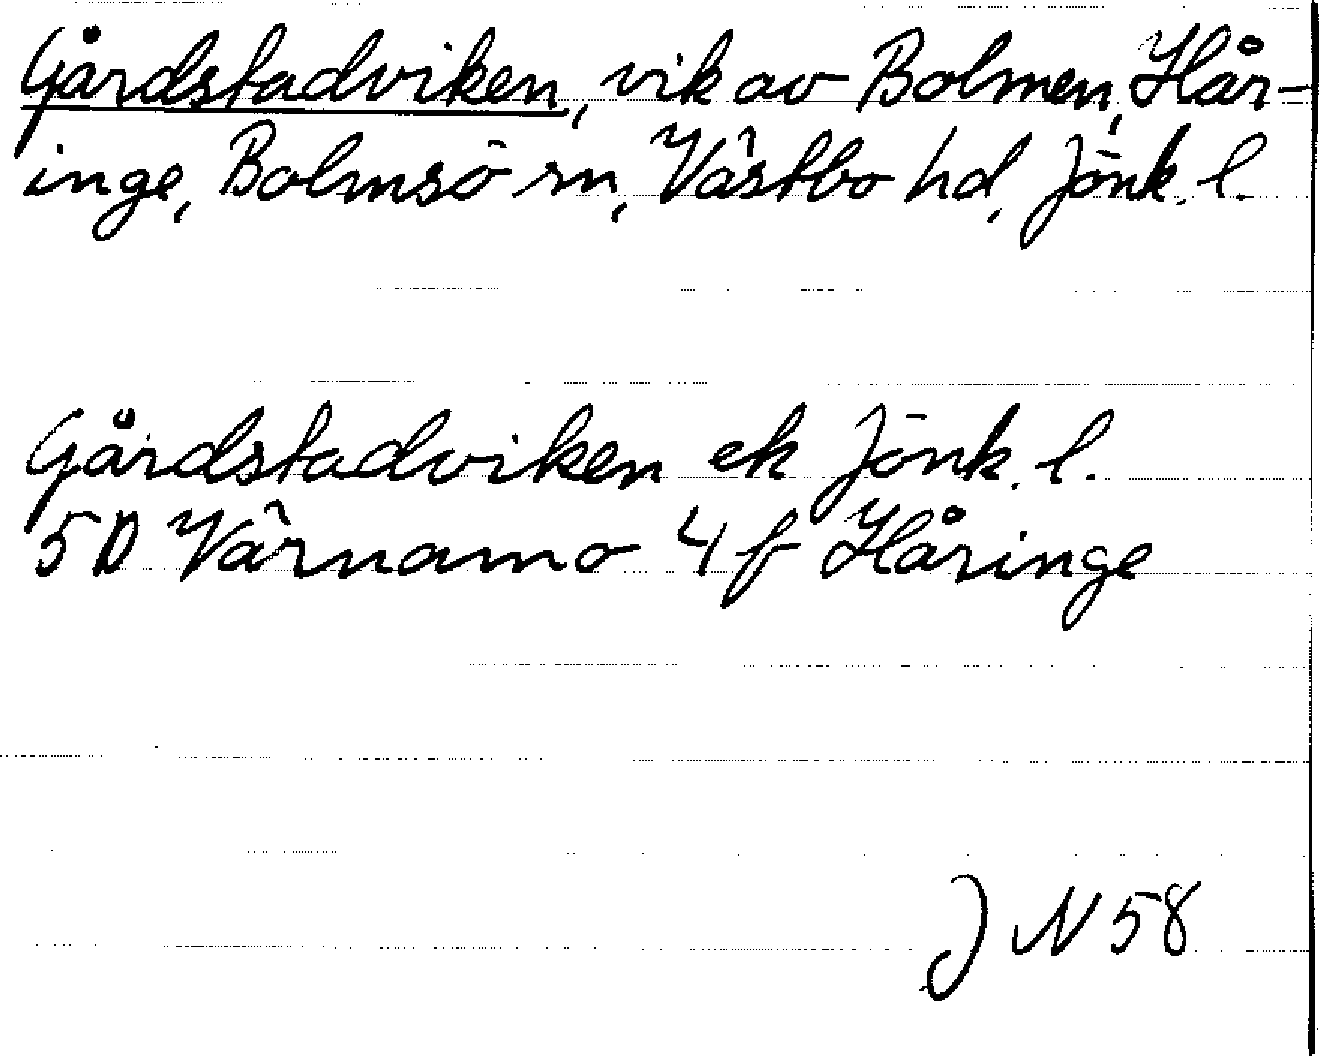 Gårdstadviken, vik av Bolmen, Hår-
inge, Bolmsö sn, Västbo hd, Jönk. l.
Gårdstadviken ek Jönk. l.
5D Värnamo 4f Håringe
J N 58